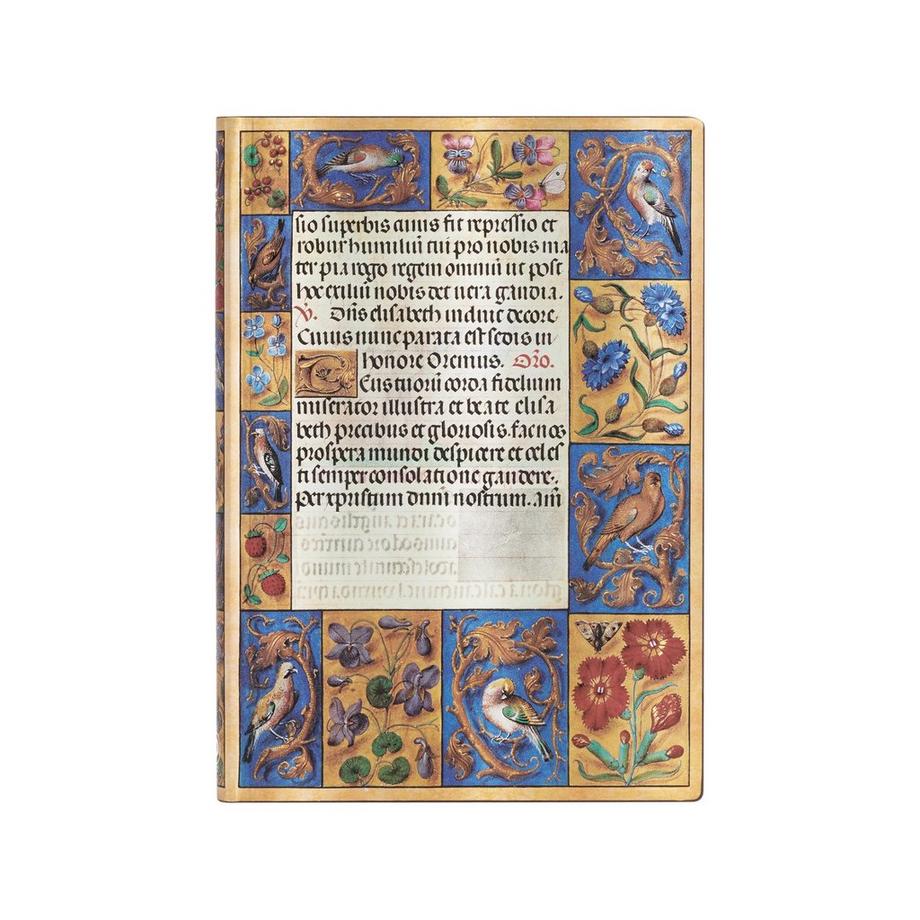 sio superbis cuius fit repressio et
robur humiliū tui pro nobis ma
ter pia rogo regem omniū ut post
hoc exiliū nobis det uera gaudia.
V. Dñs elisabeth induit decore
Cuius nunc parata est sedis in
honore Oremus. Orō.
Deus tuorū corda fidelium
miserator illustra et beate elisa
beth precibus et gloriosis fac nos
prospera mundi despicere et celes
ti semper consolatione gaudere.
Per xpristum dnm̄ nostrum. Am̄